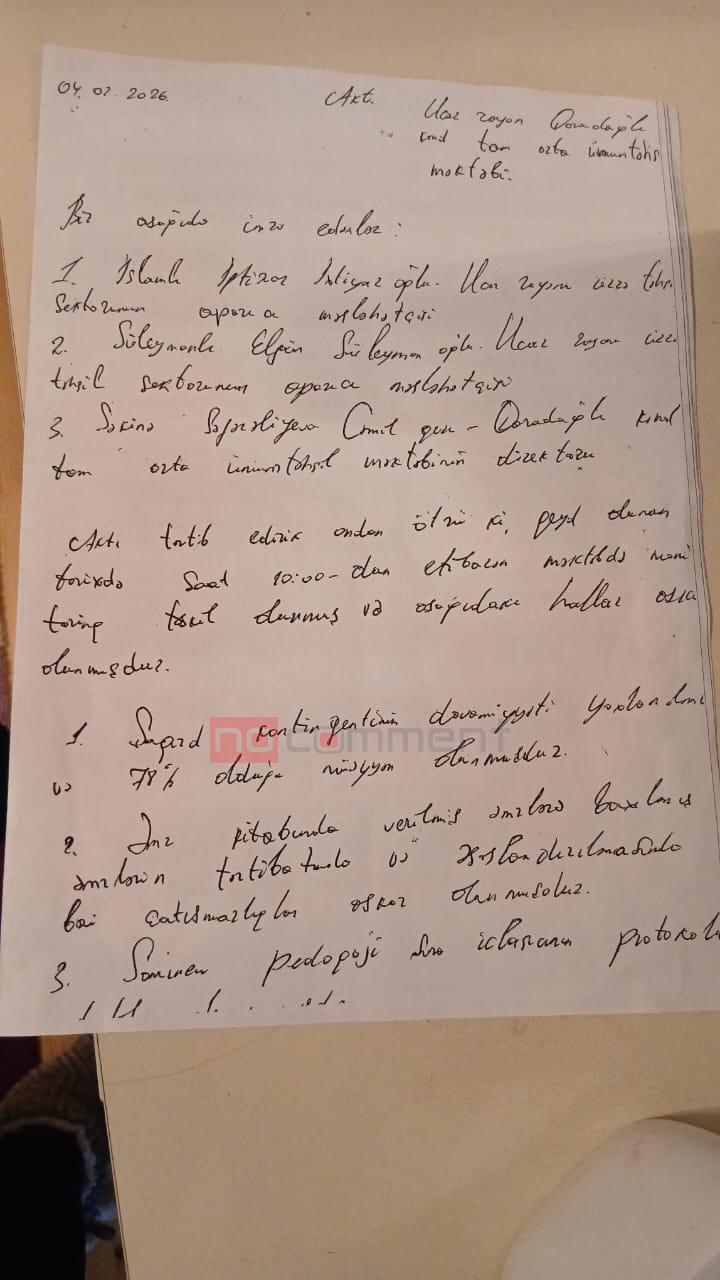 04.02.2026. Akt. Ucar rayon Qaradağlı
kənd tam orta ümumtəhsil
məktəbi.
Biz aşağıda imza edənlər:
1. İslamlı İftixar İmtiyaz oğlu. Ucar rayon üzrə təhsil
sektorunun aparıcı məsləhətçisi
2. Süleymanlı Elgün Süleyman oğlu. Ucar rayon üzrə
təhsil sektorunun aparıcı məsləhətçisi
3. Səkinə Səfərəliyeva Cəmil qızı - Qaradağlı kənd
tam orta ümumtəhsil məktəbinin direktoru
Aktı tərtib edirik ondan ötrü ki, qeyd olunan
tarixdə saat 10:00-dan etibarən məktəbdə moni
toring təşkil olunmuş və aşağıdakı hallar aşkar
olunmuşdur.
1. Şagird kontingentinin davamiyyəti yoxlanılmış
və 78% olduğu müəyyən olunmuşdur.
2. Əmr kitabında verilmiş əmrlərə baxılmış
əmrlərin tərtibatında və rəsmiləşdirilməsində
bəzi çatışmazlıqlar aşkar olunmuşdur.
3. pedaqoji Şura iclasının protokolu
no comment